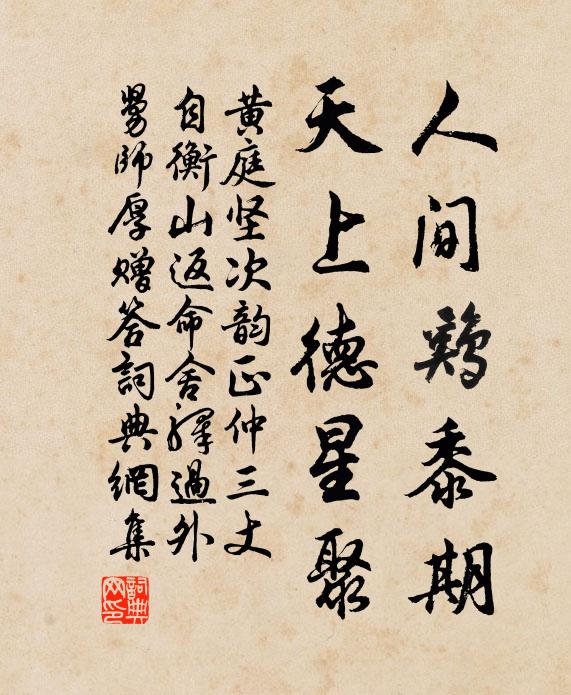 人间鸡黍期
天上德星聚
黄庭坚次韵正仲三丈
自衡山返命舍驿过外
舅师厚赠答词典網集
詞典网印